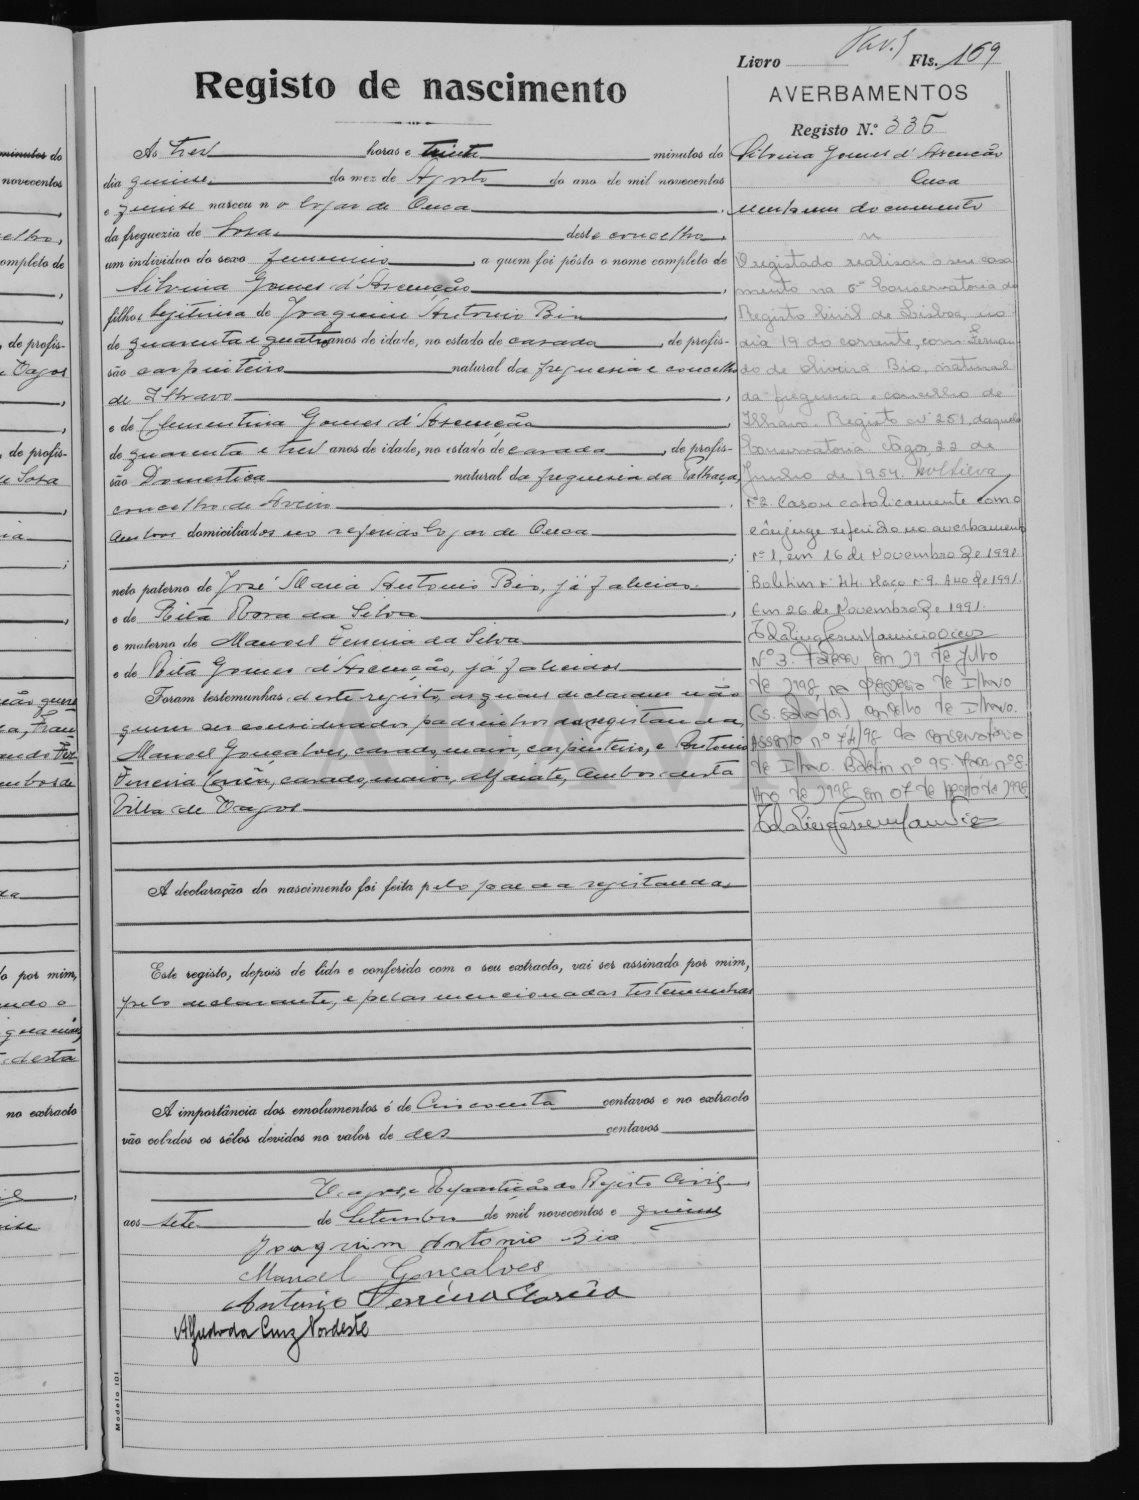 Livro Fls. 169
Registo de nascimento
AVERBAMENTOS
Registo N.º 335
Às tres horas e trinta minutos do
dia quinse do mez de Agosto do ano de mil novecentos
e quinse nasceu no logar de Ouca
da freguezia de Sosa deste concelho,
um individuo do sexo femenino, a quem foi pôsto o nome completo de
Silvina Gomes d'Ascenção,
filha legitima de Joaquim Antonio Bio
de quarenta e quatro anos de idade, no estado de casado, de profis-
são carpinteiro natural da freguesia e concelho
de Ilhavo,
e de Clementina Gomes d'Ascenção,
de quarenta e tres anos de idade, no estado de casada, de profis-
são Domestica natural da freguesia da Palhaça,
concelho de Aveiro.
ambos domiciliados no referido logar de Ouca
;
neto paterno de José Maria Antonio Bio, já falecido
e de Rita Rosa da Silva,
e materno de Manoel Ferreira da Silva
e de Rita Gomes d'Ascenção, já falecidos
Foram testemunhas deste registo, as quais declararam não
querer ser considerados padrinhos da registanda,
Manoel Gonçalves, casado, maior, carpinteiro, e Antonio
Ferreira Corrêa, casado, maior, alfaiate, ambos desta
Villa de Vagos
A declaração do nascimento foi feita pelo pae da registanda
Este registo, depois de lido e conferido com o seu extracto, vai ser assinado por mim,
pelo declarante, e pelas mencionadas testemunhas
A importância dos emolumentos é de Cincoenta centavos e no extracto
vão colados os sêlos devidos no valor de dez centavos
Vagos, e Repartição do Registo Civil,
aos sete de Setembro de mil novecentos e quinse
Joaquim Antonio Bio
Manoel Gonçalves
Antonio Ferreira Corrêa
Alfredo da Cruz Nordeste
Modelo 101
Silvina Gomes d'Ascenção
Ouca
Nenhum documento
O registado realisou o seu casa
mento na 6ª Conservatoria do
Registo Civil de Lisboa, no
dia 19 do corrente, com Fernan
do de Oliveira Bio, natural
da freguesia e concelho de
Ilhavo. Registo nº 251 daquela
Conservatoria. Vagos, 22 de
Junho de 1954.
nº 2. Casou catolicamente com o
cônjuge referido no averbamento
nº 1, em 16 de Novembro de 1991.
Boletim nº 44. Maço nº 9. Ano de 1991.
Em 26 de Novembro de 1991.
Nº 3. Faleceu em 29 de Julho
de 1998, na freguesia de Ilhavo
(S. Salvador) concelho de Ilhavo.
Assento nº 74/98 da Conservatória
de Ilhavo. Boletim nº 95. Maço nº 8.
Ano de 1998. Em 07 de Agosto de 1998
ADAVR
minutos do
novecentos
ompleto de
, de profis-
Vagos
, de profis-
de Sosa
o por mim,
desta
no extracto